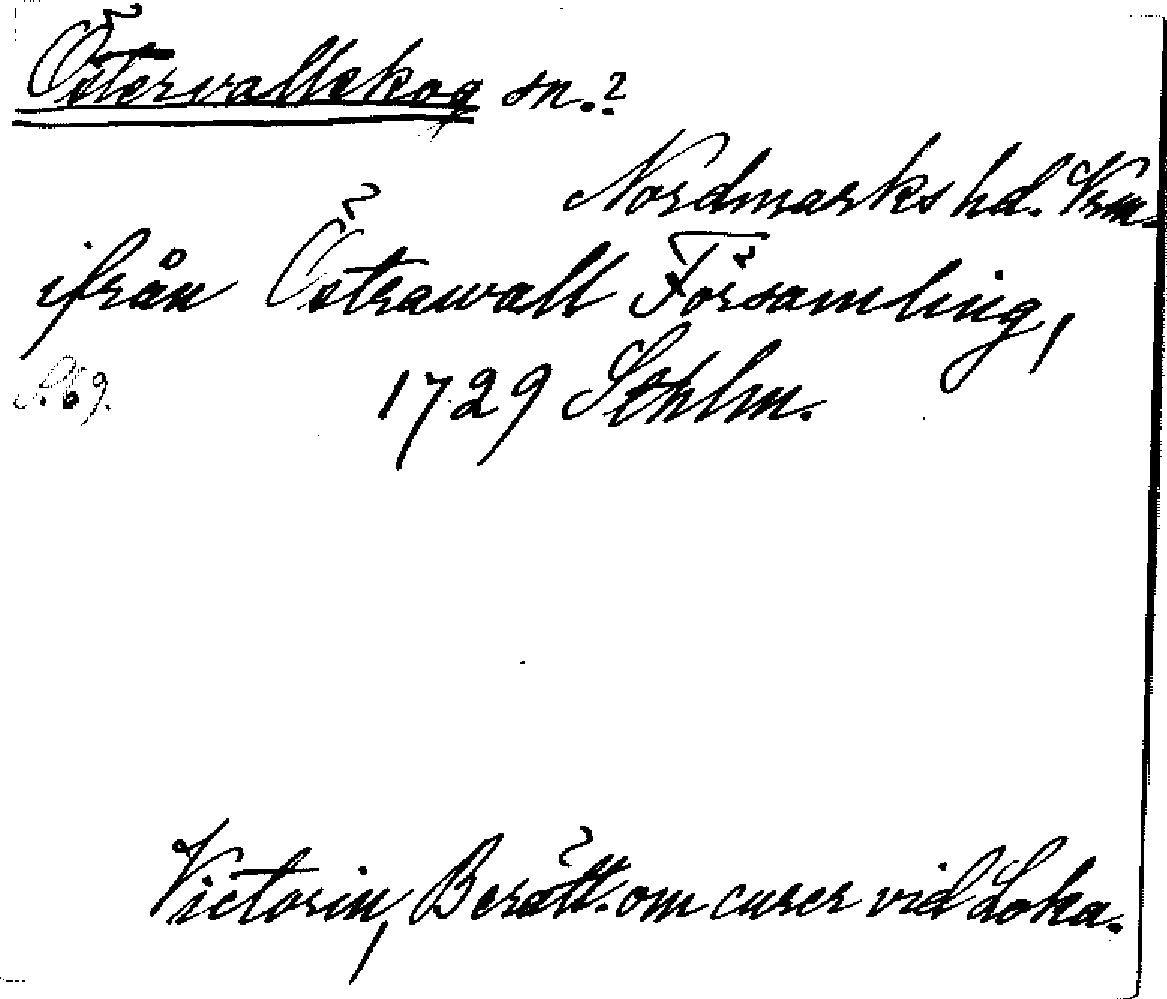 Östervallskog sn.?
Nordmarks hd. Vrm.
ifrån Östrawall Församling,
S. 69. 1729 Sthlm.
Victorin, Berätt. om curer vid Loka.